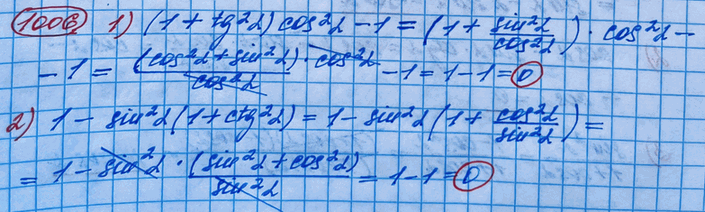 1006 1) (1 + tg²α) cos²α - 1 = (1 + sin²α/cos²α) · cos²α -
- 1 = (cos²α + sin²α) · cos²α / cos²α - 1 = 1 - 1 = 0
2) 1 - sin²α (1 + ctg²α) = 1 - sin²α (1 + cos²α/sin²α) =
= 1 - sin²α · (sin²α + cos²α) / sin²α = 1 - 1 = 0